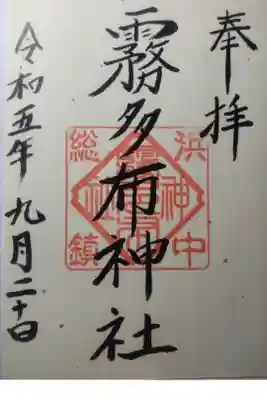 奉拝
霧多布神社
浜中
総鎮
神
社
令和五年九月二十日